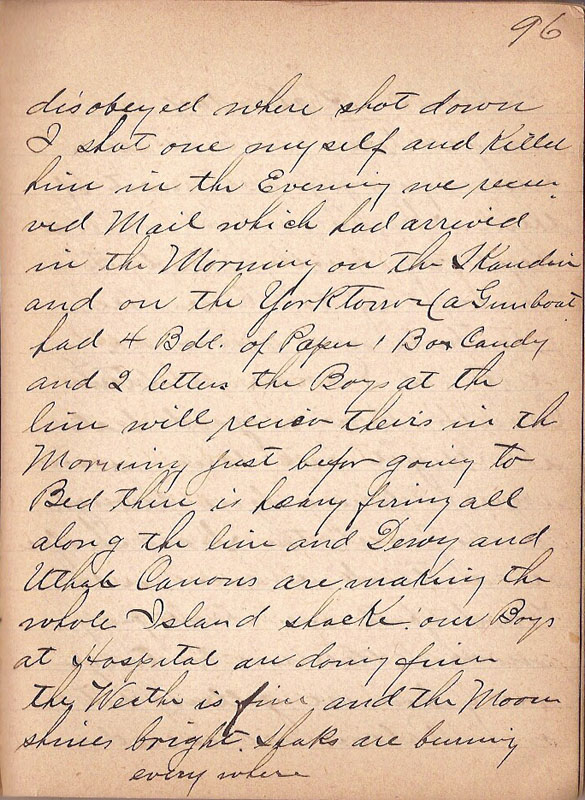 96
disobeyed where shot down
I shot one myself and Killed
him in the Evening we recie-
ved Mail which had arrived
in the Morning on the Skandia
and on the Yorktown (a Gunboat
had 4 Bdl. of Paper 1 Box Candy
and 2 letters the Boys at the
line will reciev theirs in the
Morning just befor going to
Bed there is heavy firing all
along the line and Dewy and
Uthah Canons are making the
whole Island shacke. our Boys
at Hospital are doing fine
the Weath is fine and the Moon
shines bright. Shaks are burning
every where